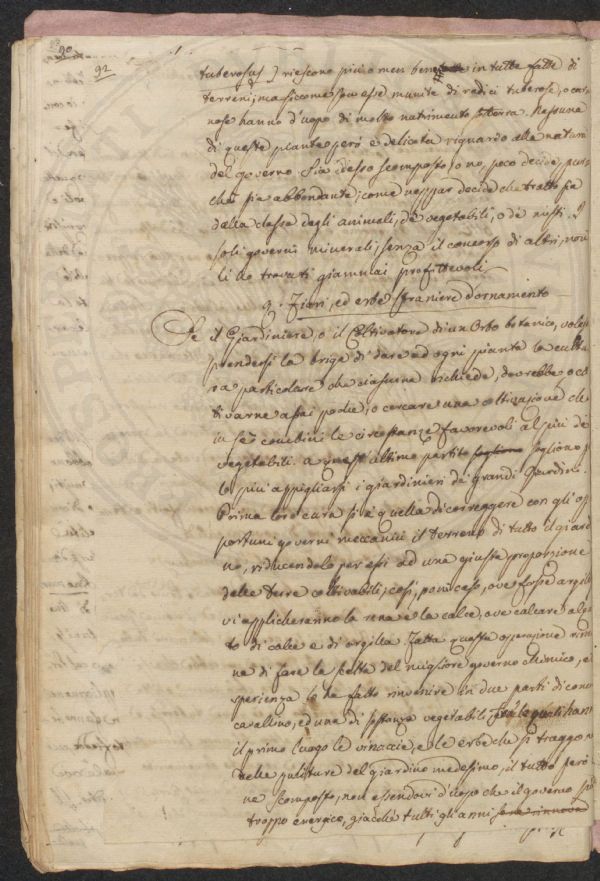 90
92
tuberosus) riescono più o men bene in tutte fatte di
terreni; ma siccome son esse munite di radici tuberose, o car
nose hanno d'uopo di molto nutrimento terra. Nessuna
di queste piante però è delicata riguardo alla natura
del governo. Sia desso scomposto o no, poco decide, pur
chè sia abbondante; come neppur decide che tratto sia
dalla classe degli animali, de' vegetabili, o de' misti. I
soli governi minerali, senza il concorso di altri, non
li ho trovati giammai profittevoli
9. Fiori, ed erbe straniere d'ornamento
Se il Giardiniere, o il Coltivatore di un Orto botanico, voles
prendersi la briga di dare ad ogni pianta la cultu
ra particolare che ciascuna richiede, dovrebbe o col
tivarne assai poche, o cercare una coltivazione che
in sè combini le circostanze favorevoli al più de'
vegetabili. a quest'ultimo partito sogliono
lo più appigliarsi i giardinieri de' grandi Giardini.
Prima loro cura si è quella di correggere con gli op
portuni governi meccanici il terreno di tutto il giardi
no, riducendolo per essi ad una giusta proporzione
delle terre coltivabili; così, ove fosse argil
vi applicheranno la rena e la calce, ove calcare al
to di calce e di argilla. Fatta questa operazione rima
ne di fare la scelta del migliore governo chimico, e
sperienza lo ha fatto rinvenire in due parti di conc
cavallino, ed una di sostanze vegetabili hanno
il primo luogo le vinaccie, e le erbe che si traggono
nelle puliture del giardino medesimo, il tutto però
ne scomposto, non essendovi d'uopo che il governo sia
troppo energico, giacchè tutti gli anni